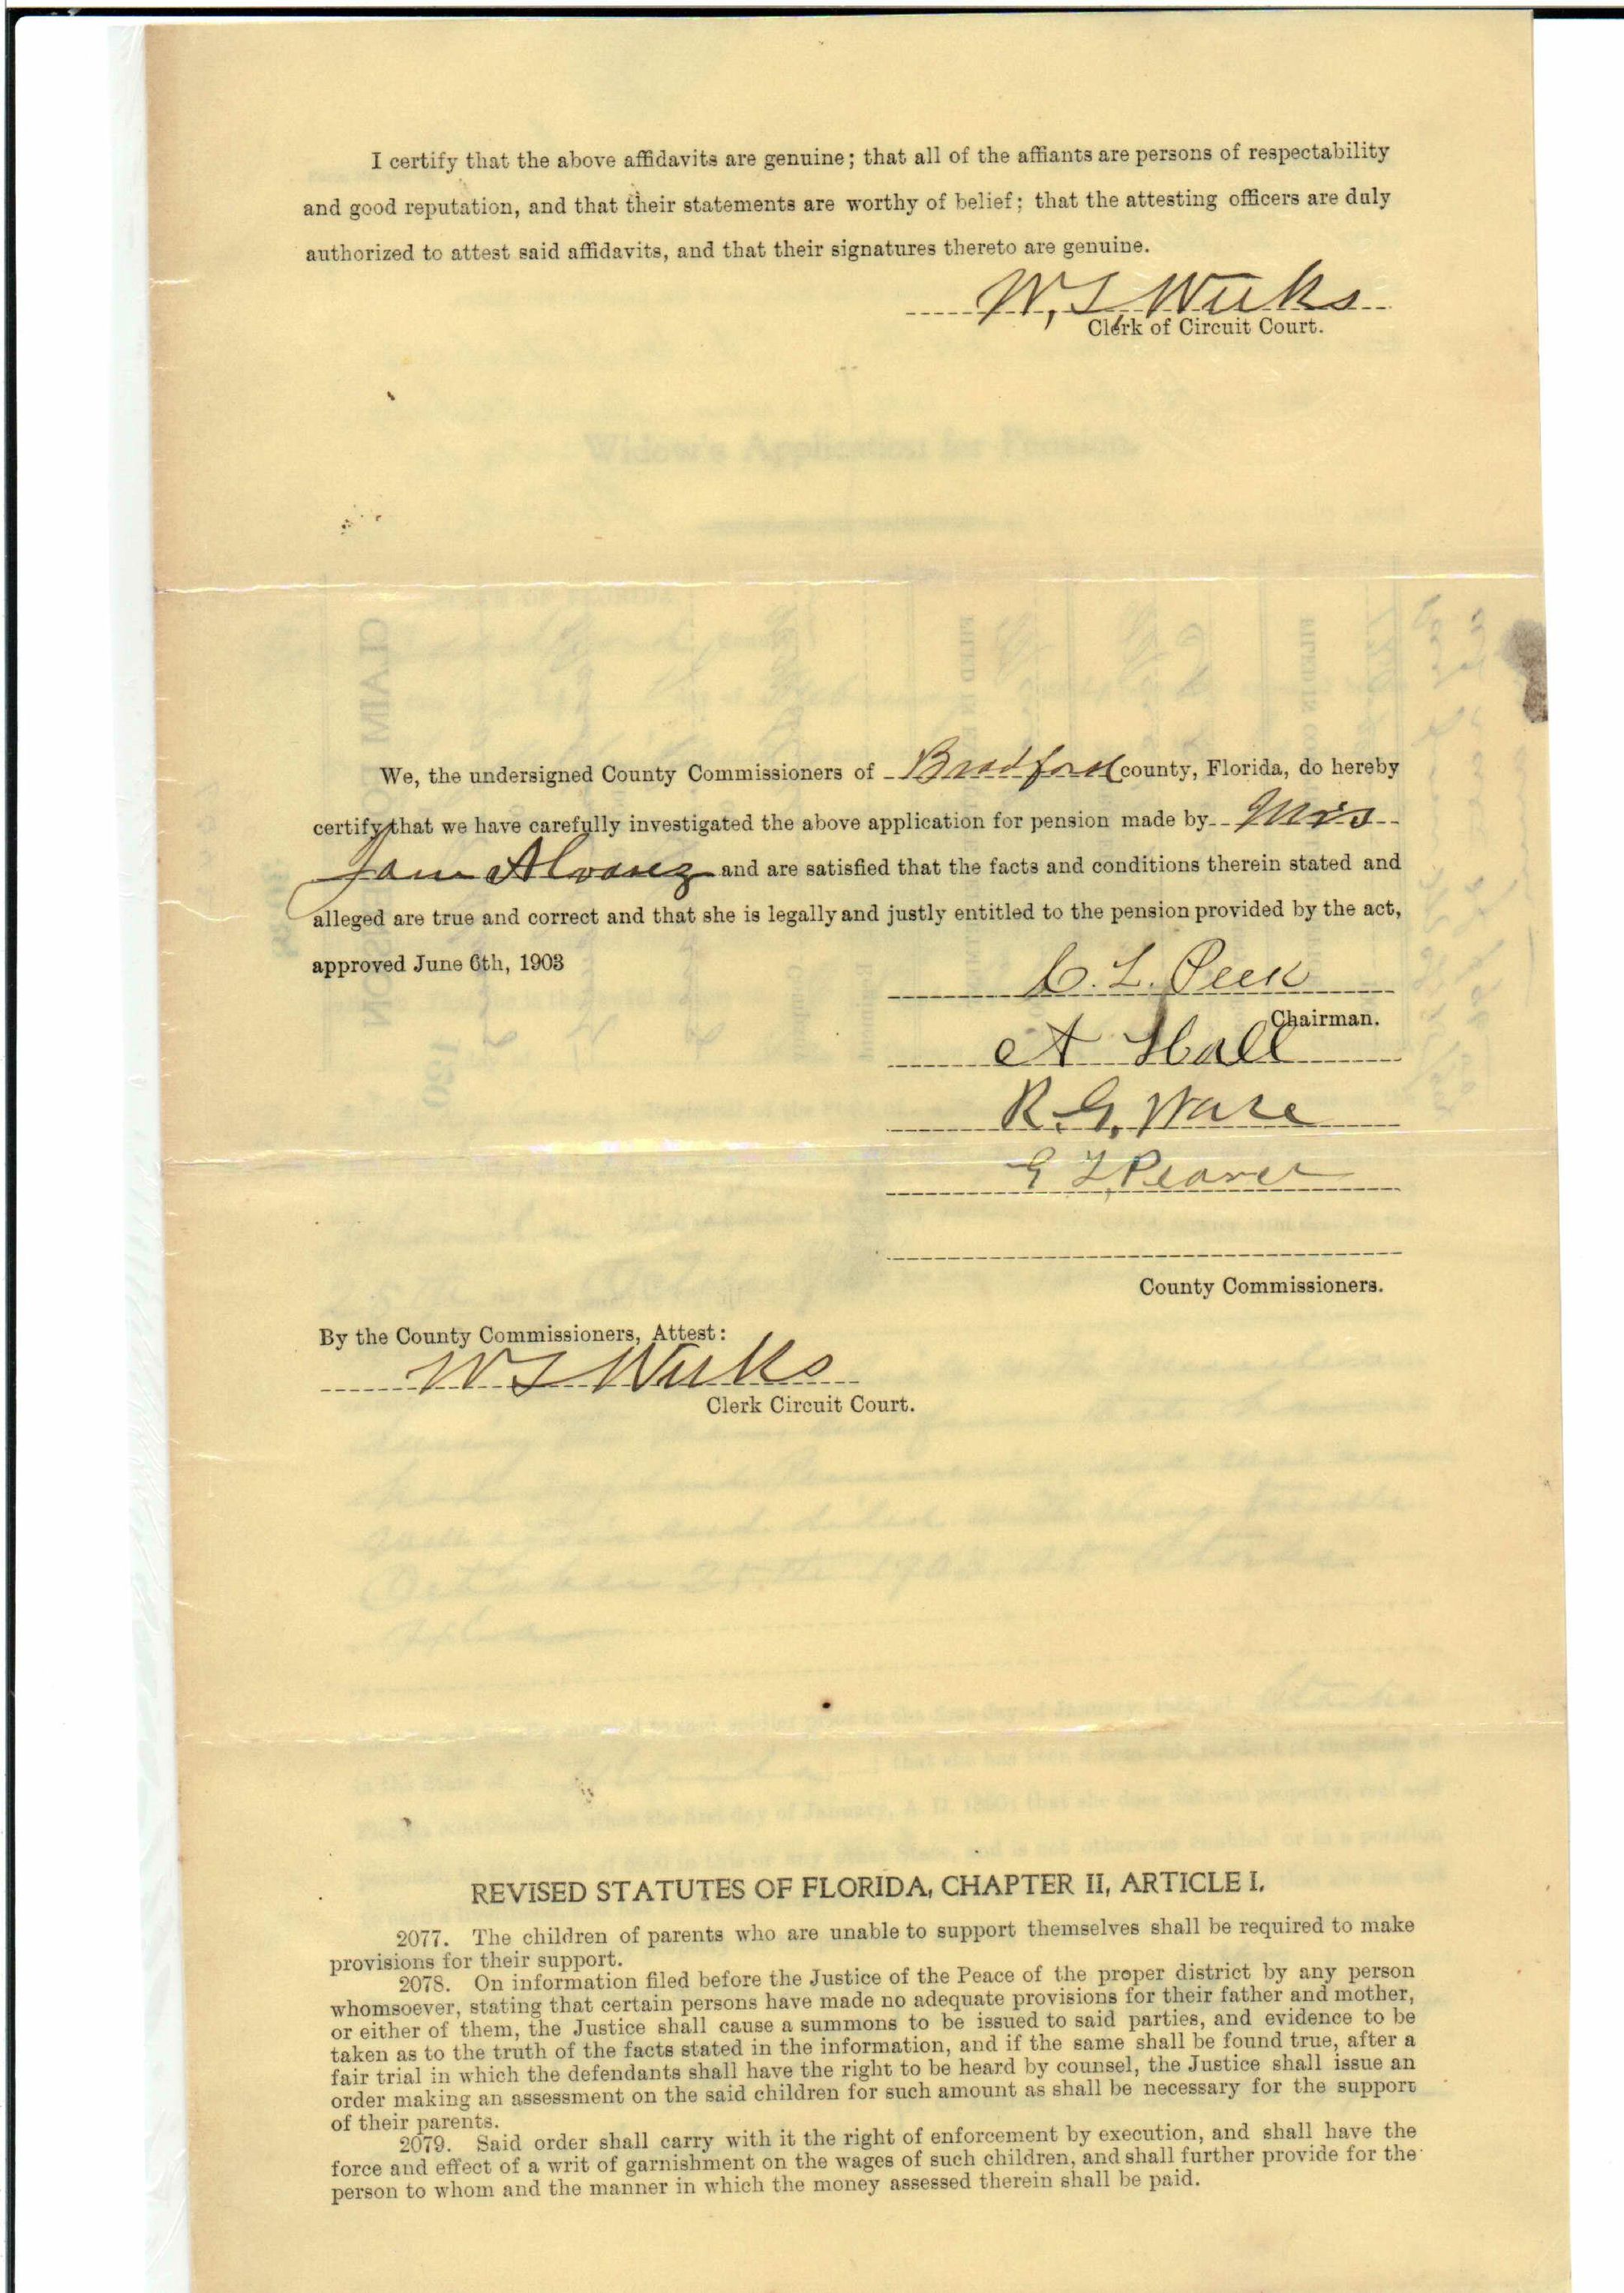 I certify that the above affidavits are genuine; that all of the affiants are persons of respectability
and good reputation, and that their statements are worthy of belief; that the attesting officers are duly
authorized to attest said affidavits, and that their signatures thereto are genuine.
W. L. Weeks
Clerk of Circuit Court.
Widow's Application for Pension.
We, the undersigned County Commissioners of Bradford county, Florida, do hereby
certify that we have carefully investigated the above application for pension made by Mrs
Jane Alvarez and are satisfied that the facts and conditions therein stated and
alleged are true and correct and that she is legally and justly entitled to the pension provided by the act,
approved June 6th, 1903
C. L. Peek
Chairman.
A Hall
R. G. Ware
County Commissioners.
By the County Commissioners, Attest:
W L Weeks
Clerk Circuit Court.
REVISED STATUTES OF FLORIDA, CHAPTER II, ARTICLE I.
2077. The children of parents who are unable to support themselves shall be required to make
provisions for their support.
2078. On information filed before the Justice of the Peace of the proper district by any person
whomsoever, stating that certain persons have made no adequate provisions for their father and mother,
or either of them, the Justice shall cause a summons to be issued to said parties, and evidence to be
taken as to the truth of the facts stated in the information, and if the same shall be found true, after a
fair trial in which the defendants shall have the right to be heard by counsel, the Justice shall issue an
order making an assessment on the said children for such amount as shall be necessary for the support
of their parents.
2079. Said order shall carry with it the right of enforcement by execution, and shall have the
force and effect of a writ of garnishment on the wages of such children, and shall further provide for the
person to whom and the manner in which the money assessed therein shall be paid.